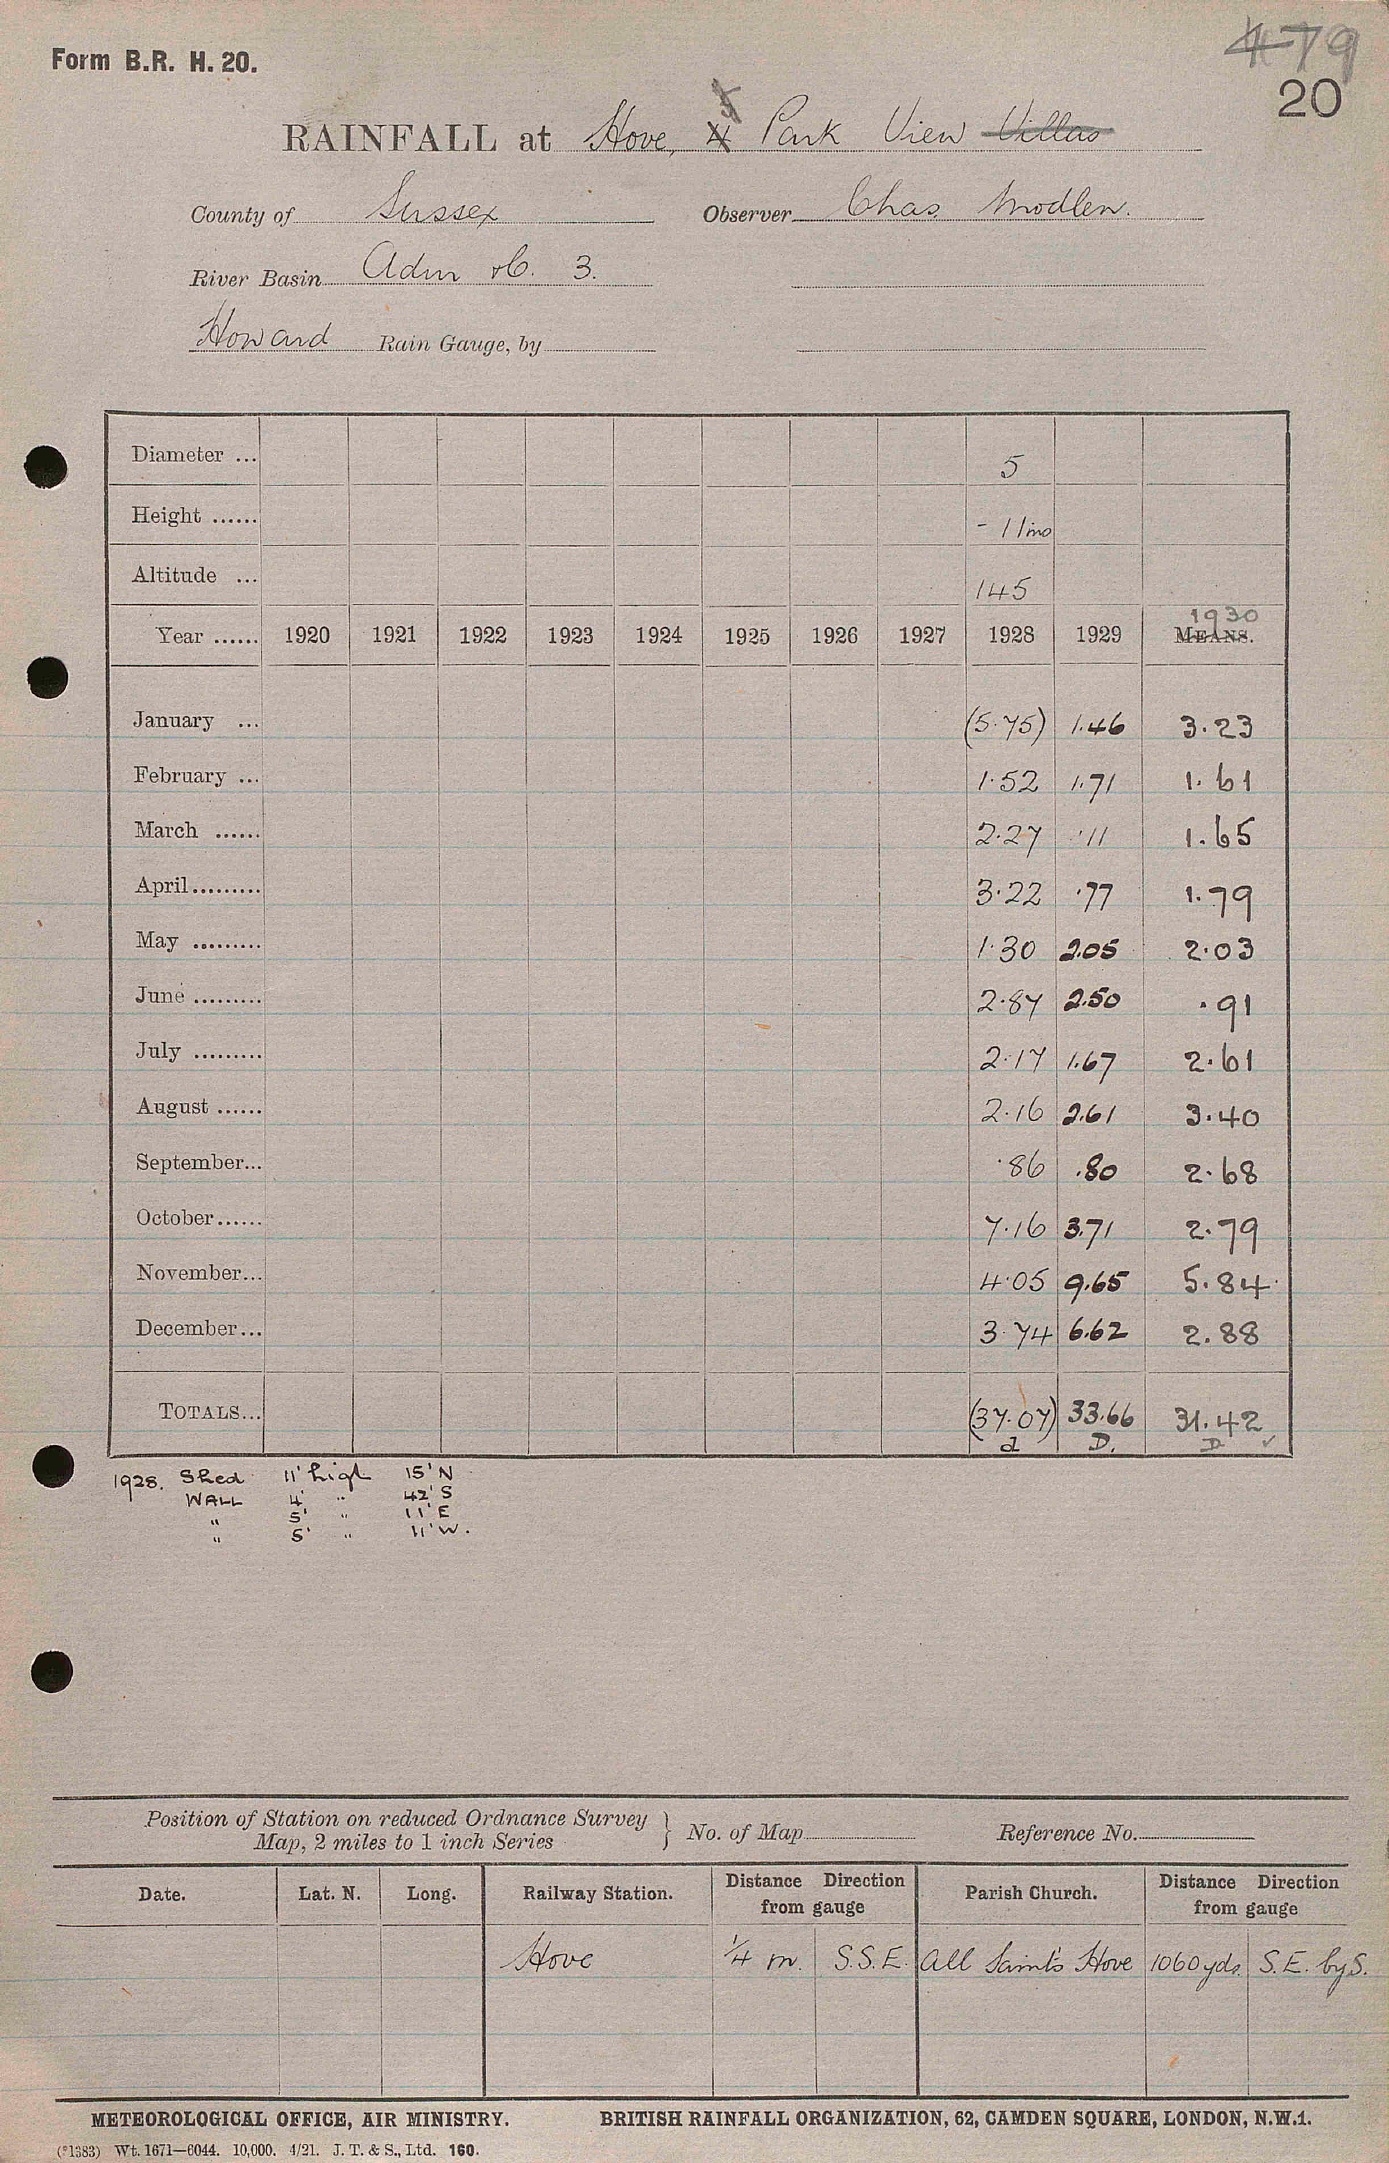 Form B.R. H. 20.
479
20
RAINFALL at Hove, 4 Park View Villas
County of Sussex Observer Chas. Modlen.
River Basin Adur &c. 3.
Howard Rain Gauge, by
Diameter ... 5
Height ...... - 11 ins
Altitude ... 145
Year ...... 1920 1921 1922 1923 1924 1925 1926 1927 1928 1929 MEANS. 1930
January ... (5.75) 1.46 3.23
February ... 1.52 1.71 1.61
March ...... 2.27 .11 1.65
April ......... 3.22 .77 1.79
May ......... 1.30 2.05 2.03
June ......... 2.87 2.50 .91
July ......... 2.17 1.67 2.61
August ...... 2.16 2.61 3.40
September... .86 .80 2.68
October...... 7.16 3.71 2.79
November... 4.05 9.65 5.84
December... 3.74 6.62 2.88
TOTALS... (37.07) 33.66 31.42
d D. D ✓
1928. Shed 11' high 15' N
WALL 4' " 42' S
" 5' " 11' E
" 5' " 11' W.
Position of Station on reduced Ordnance Survey
Map, 2 miles to 1 inch Series } No. of Map Reference No.
Date. Lat. N. Long. Railway Station. Distance Direction from gauge Parish Church. Distance Direction from gauge
Hove 1/4 m. S.S.E. All Saints Hove 1060 yds. S.E. by S.
METEOROLOGICAL OFFICE, AIR MINISTRY. BRITISH RAINFALL ORGANIZATION, 62, CAMDEN SQUARE, LONDON, N.W.1.
(*1383) Wt. 1671—6044. 10,000. 4/21. J. T. & S., Ltd. 160.